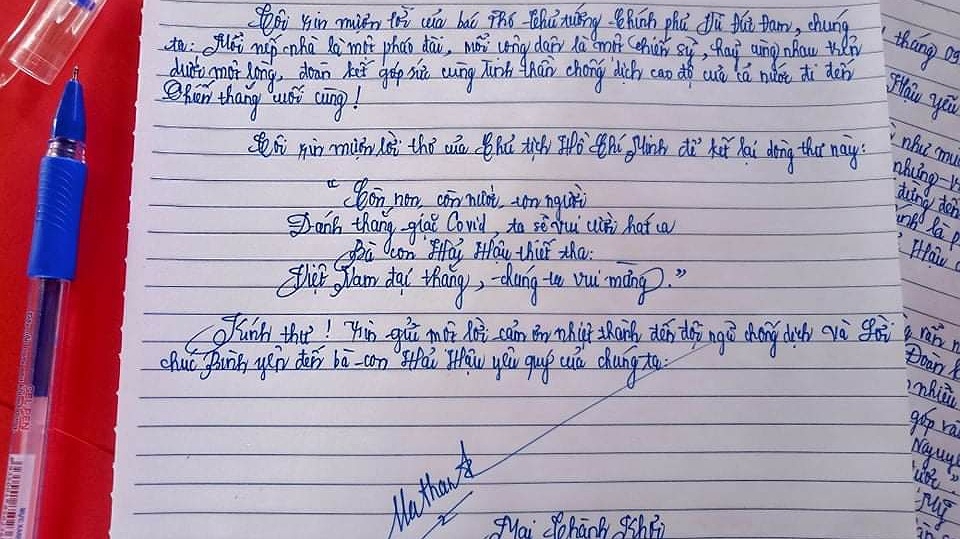 Tôi xin mượn lời của bác Phó Thủ tướng Chính phủ Vũ Đức Đam, chúng
ta: Mỗi nếp nhà là một pháo đài, mỗi công dân là một chiến sỹ, hãy cùng nhau trên
dưới một lòng, đoàn kết góp sức cùng tinh thần chống dịch cao độ của cả nước đi đến
Chiến thắng cuối cùng!
Tôi xin mượn lời thơ của Chủ tịch Hồ Chí Minh để kết lại dòng thư này:
"Còn non, còn nước, còn người
Đánh thắng giặc Covid, ta sẽ vui cười hát ca
Bà con Hải Hậu thiết tha:
Việt Nam đại thắng, chúng ta vui mừng."
Kính thư! Xin gửi một lời cảm ơn nhiệt thành đến đội ngũ chống dịch và Lời
chúc Bình yên đến bà con Hải Hậu yêu quý của chúng ta.
Mai Thành Khởi
tháng 09
Hậu yêu
như mu
nhưng
đứng đến
là p
Hậu
Đoàn k
nhiều
góp